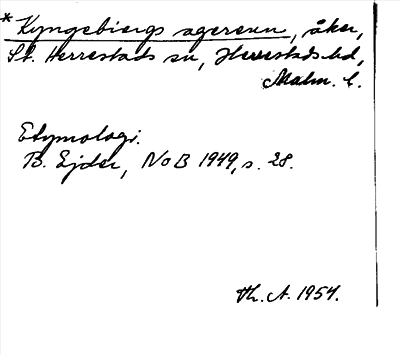 * Kyngebiergs agerenn, åker,
St. Herrestads sn, Herrestads hd,
Malm. l.
Etymologi.
B. Ejder, NoB 1949, s. 28.
Th. A. 1954.